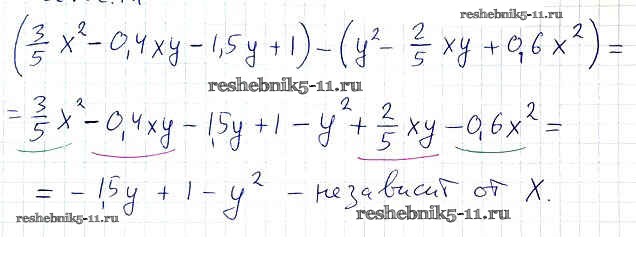 reshebnik5-11.ru
(3/5 x² - 0,4xy - 1,5y + 1) - (y² - 2/5 xy + 0,6x²) =
reshebnik5-11.ru
= 3/5 x² - 0,4xy - 1,5y + 1 - y² + 2/5 xy - 0,6x² =
= - 1,5y + 1 - y² - независит от х.
reshebnik5-11.ru
reshebnik5-11.ru